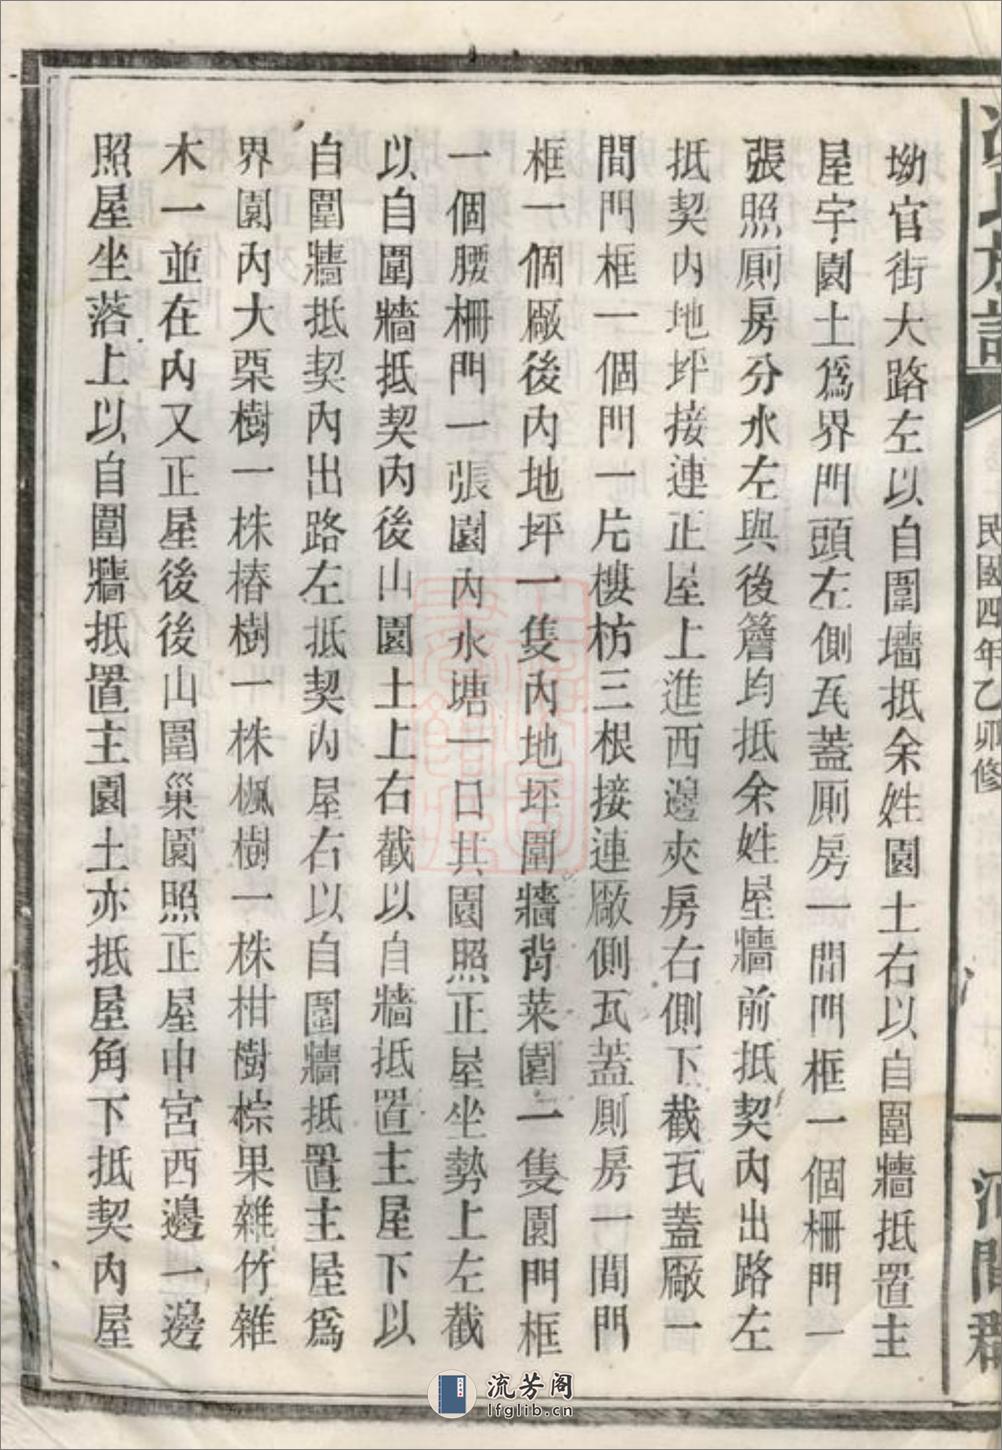 氏族譜
民國四年乙卯修
河間郡
坳官街大路左以自圍墻抵余姓園土右以自圍牆抵置主
屋宇園土爲界門頭左側瓦蓋厠房一間門框一個柵門一
張照厠房分水左與後簷均抵余姓屋牆前抵契內出路左
抵契內地坪接連正屋上進西邊夾房右側下截瓦蓋厰一
間門框一個門一片樓枋三根接連厰側瓦蓋厠房一間門
框一個厰後內地坪一隻內地坪圍牆背菜園一隻園門框
一個腰柵門一張園內水塘一口其園照正屋坐勢上左截
以自圍牆抵契內後山園土上右截以自牆抵置主屋下以
自圍牆抵契內出路左抵契內屋右以自圍牆抵置主屋爲
界園內大栗樹一株椿樹一株楓樹一株柑樹棕果雜竹雜
木一並在內又正屋後後山圍巢園照正屋中宮西邊一邊
照屋坐落上以自圍牆抵置主園土亦抵屋角下抵契內屋
流芳阁
lfglib.cn